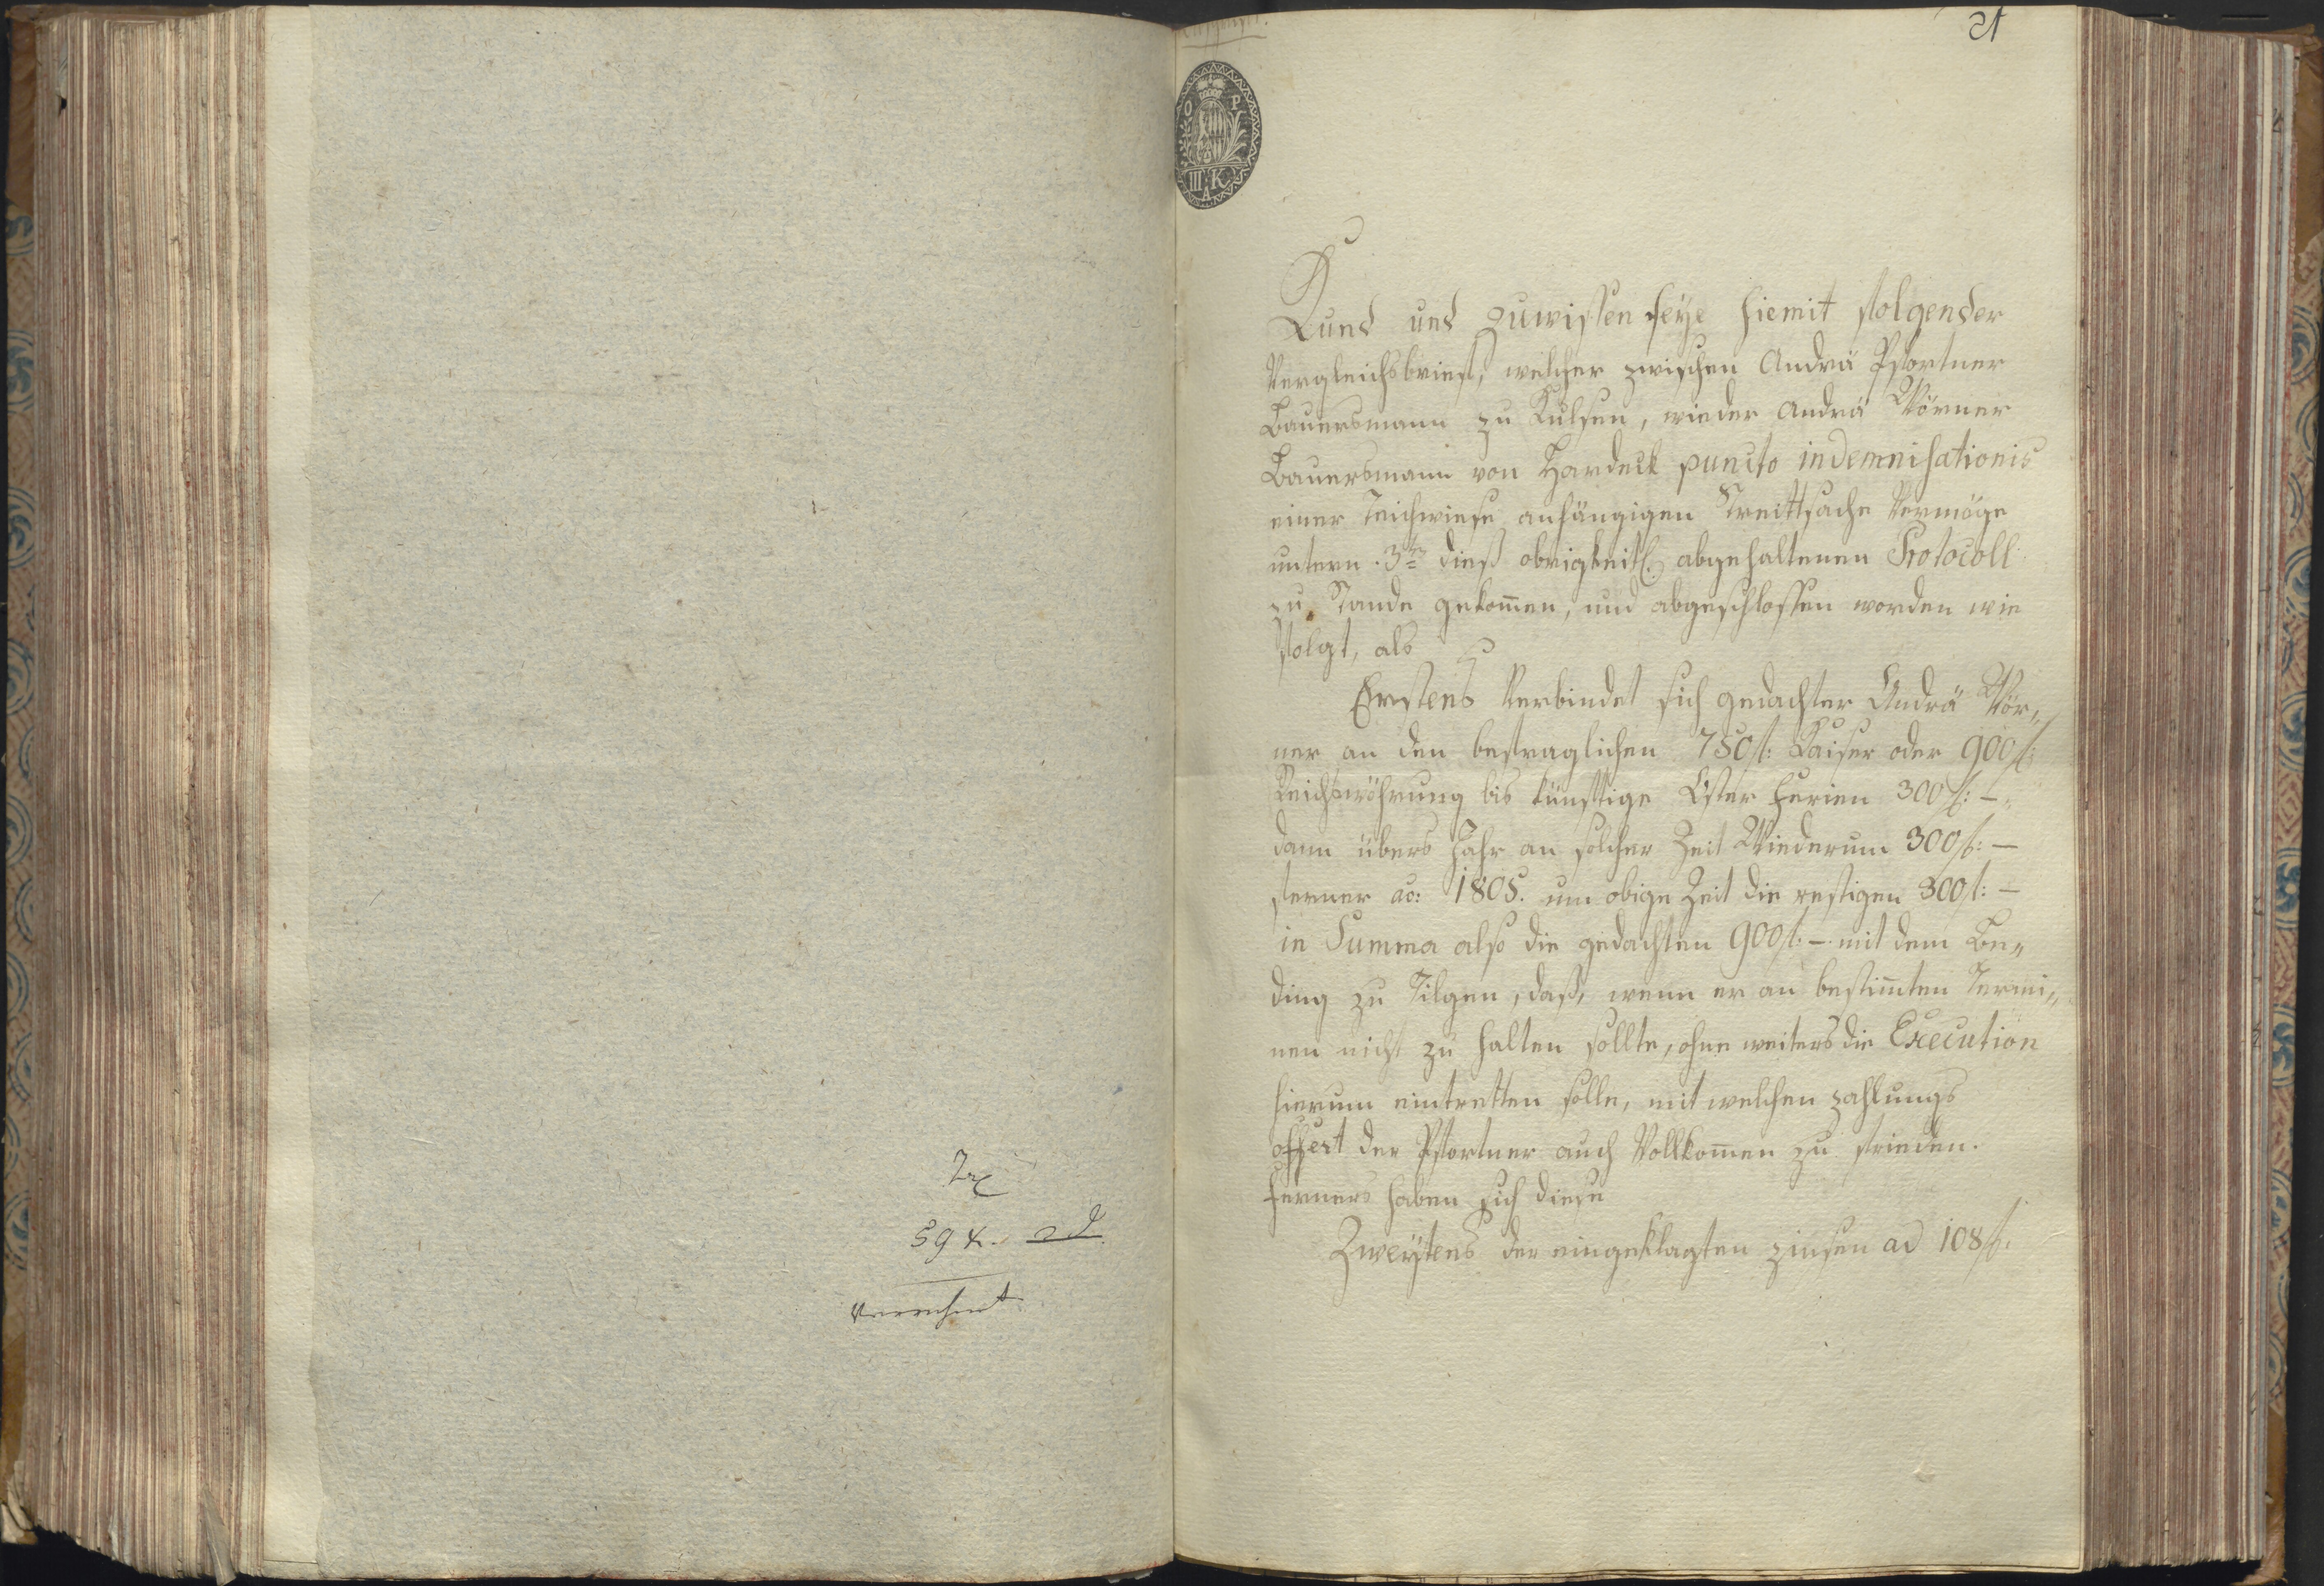 59 x. 2 d
verrechnet
21
O P
III K
A
Kund und zuwissen seye hiemit folgender
Vergleichsbrief, welcher zwischen Andrä Pfortner
Bauersmann zu Kulsen, wieder Andrä Wörner
Bauersmann von Hardeck puncto indemnisationis
einer Teichwiese anhängigen Streittsache Vermöge
untern 3ten dieß obrigkeitl. abgehaltenen Protocoll
zu Stande gekom̄en, und abgeschlossen worden wie
folgt, als
Erstens Verbindet sich gedachter Andrä Wör„
ner an den befraglichen 750 f: Kaiser oder 900 f:
Reichswöhrung bis künftige Oster Ferien 300 f: –
dann übers Jahr an solcher Zeit Wiederum 300 f: –
ferner ao: 1805. um obige Zeit die restigen 300 f: –
in Summa also die gedachten 900 f: – mit dem Be„
ding zu Tilgen, daß, wenn er an bestim̄ten Termi„
nen nicht zu halten sollte, ohne weiters die Execution
hierum eintretten solle, mit welchen zahlungs
offert der Pfortner auch Vollkom̄en zu frieden.
Ferners haben sich diese
Zweytens der eingeklagten zinsen ad 108 f: